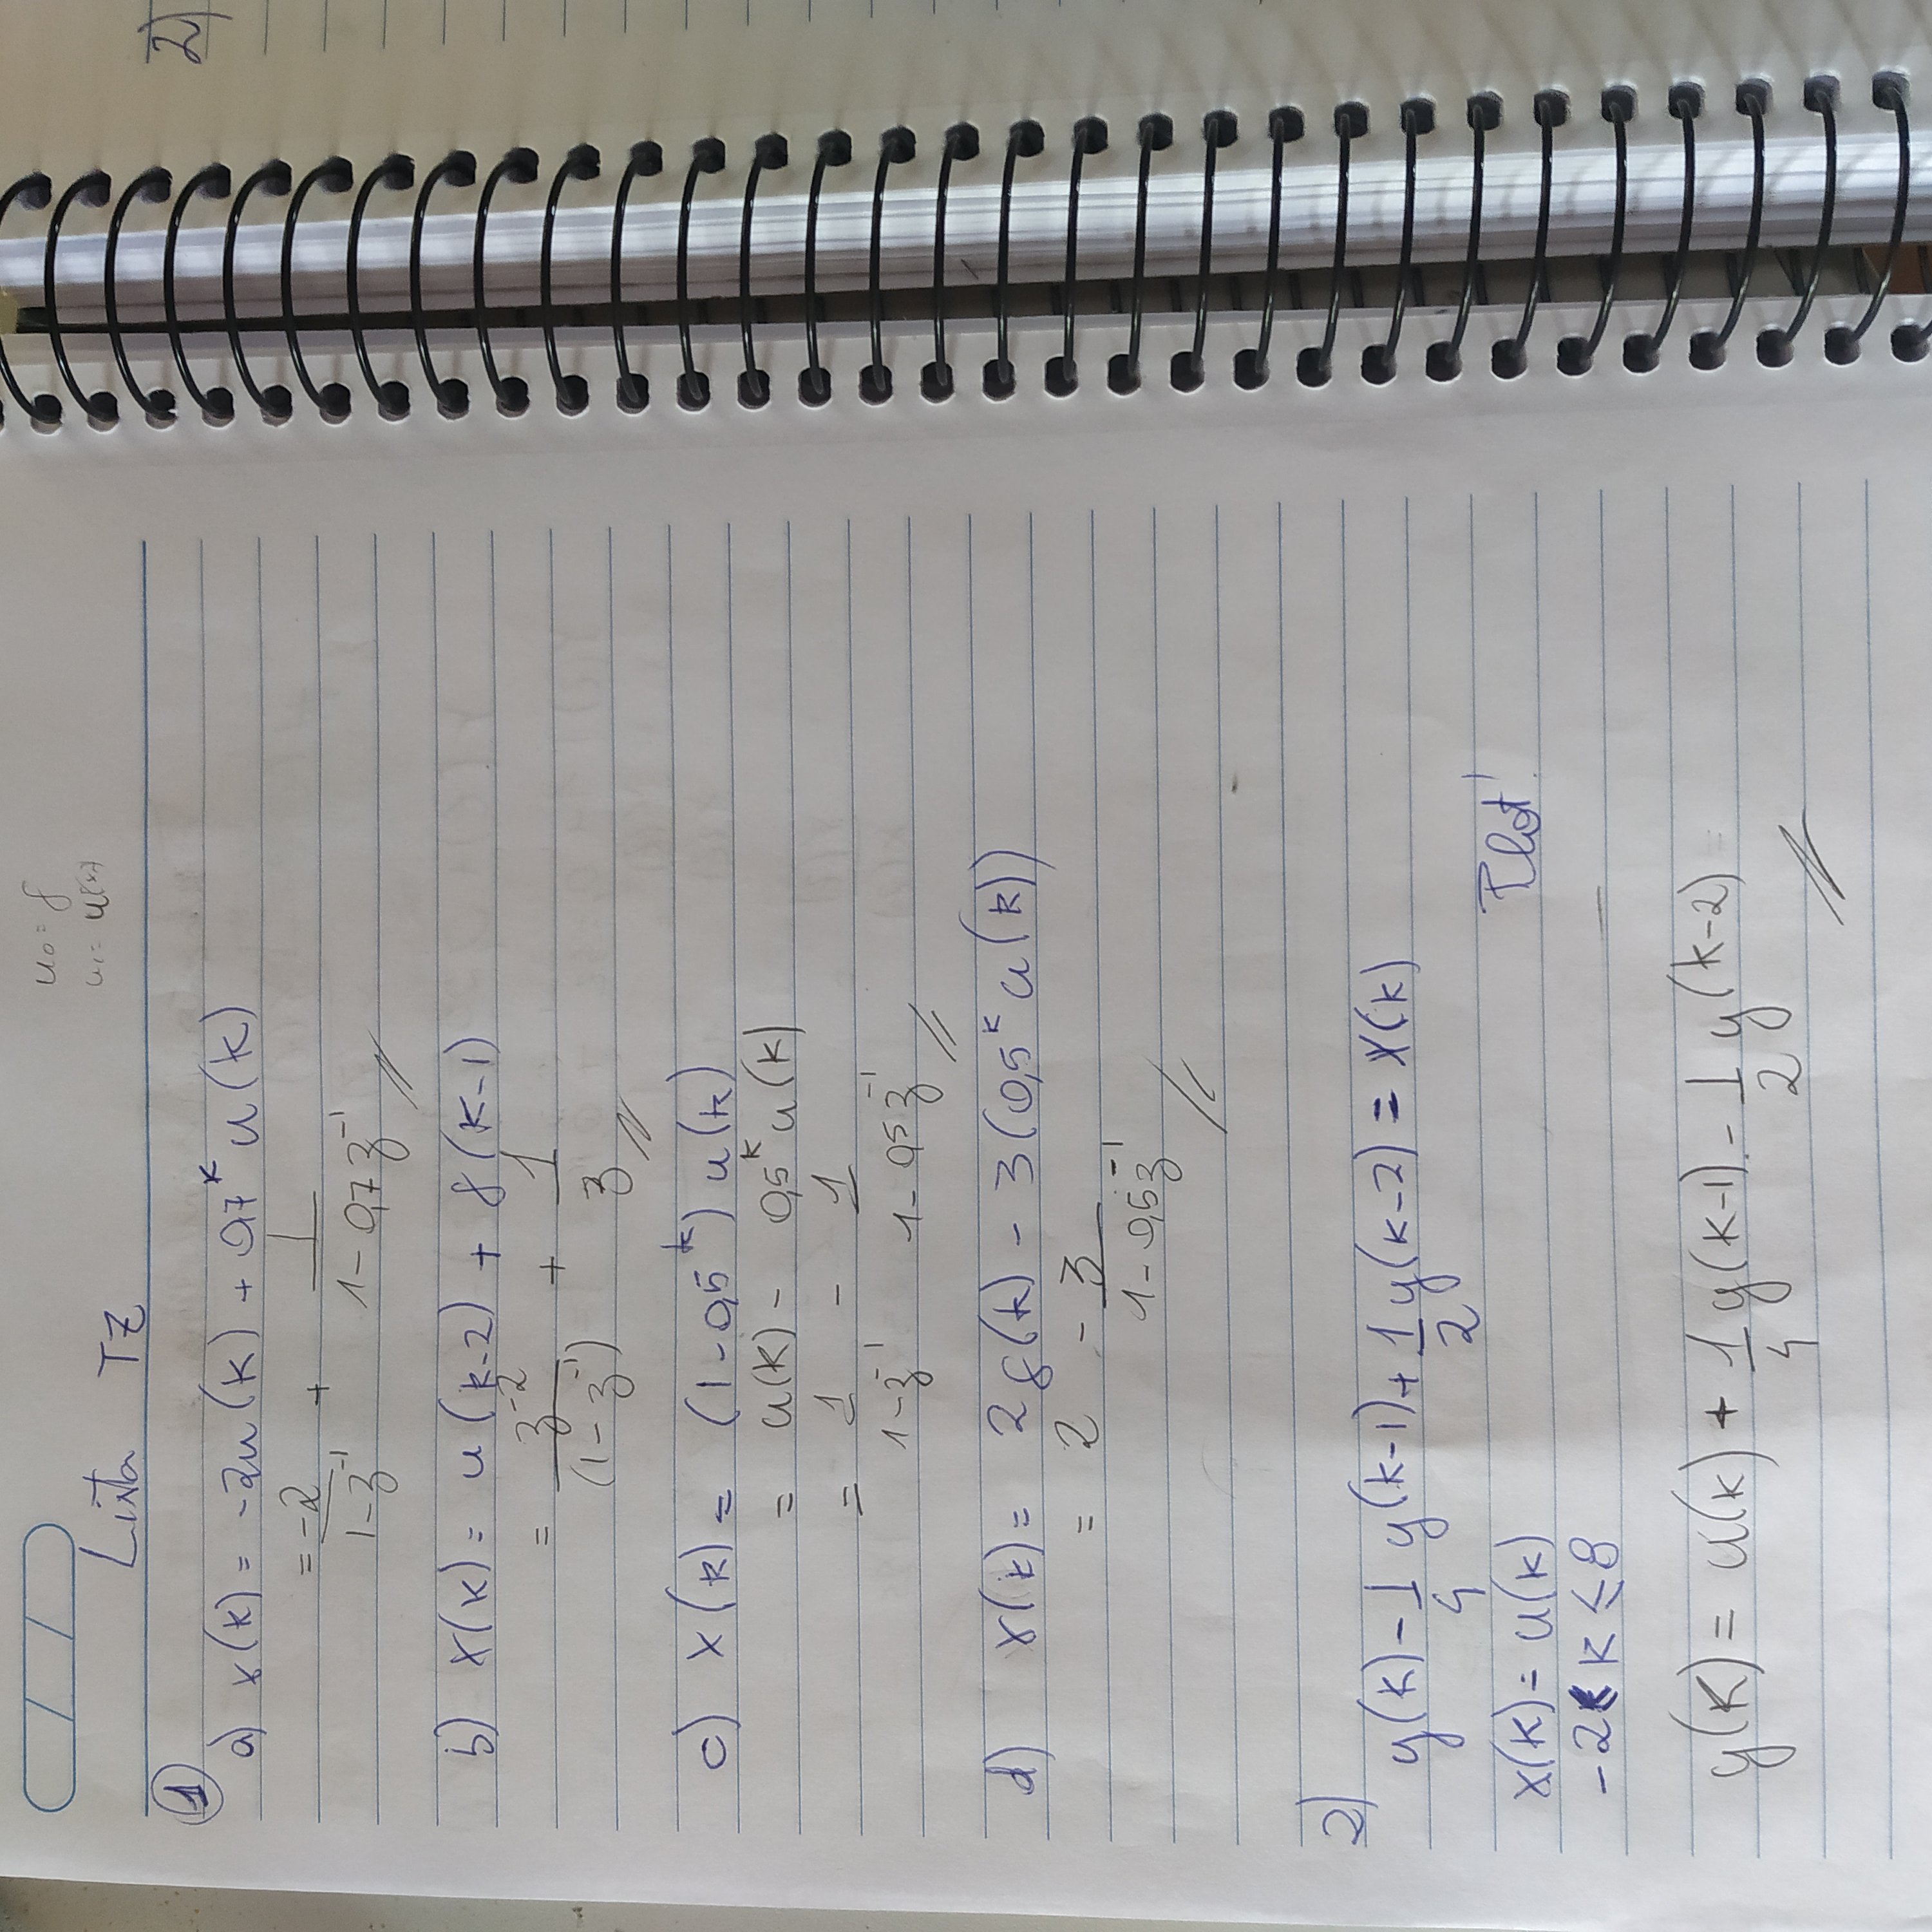 u₀ = δ
u₁ = u(k)
Lista TZ
1
a) x(k) = -2u(k) + 0,7^k u(k)
= -2/(1-z^-1) + 1/(1-0,7z^-1)
b) x(k) = u(k-2) + δ(k-1)
= z^-2/(1-z^-1) + 1/z
c) x(k) = (1-0,5^k) u(k)
= u(k) - 0,5^k u(k)
= 1/(1-z^-1) - 1/(1-0,5z^-1)
d) x(k) = 2δ(k) - 3(0,5^k u(k))
= 2 - 3/(1-0,5z^-1)
2)
y(k) - 1/4 y(k-1) + 1/2 y(k-2) = x(k)
x(k) = u(k)
Plot!
-2 < k ≤ 8
y(k) = u(k) + 1/4 y(k-1) - 1/2 y(k-2)
2)